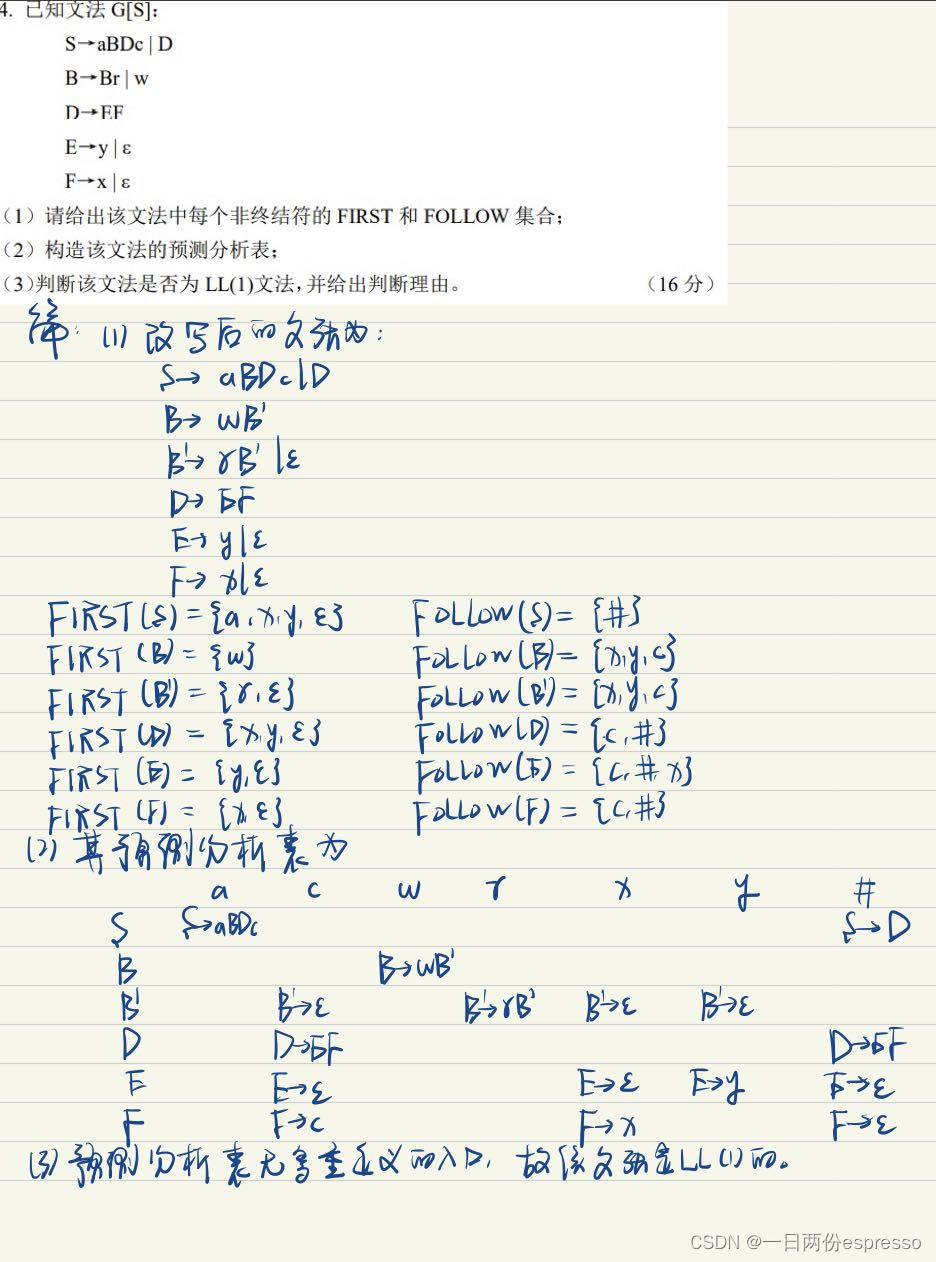 4. 已知文法 G[S]:
S→aBDc | D
B→Br | w
D→EF
E→y | ε
F→x | ε
（1）请给出该文法中每个非终结符的 FIRST 和 FOLLOW 集合；
（2）构造该文法的预测分析表；
（3）判断该文法是否为 LL(1)文法，并给出判断理由。 （16 分）
解: (1) 改写后的文法为:
S→ aBDc|D
B→ wB'
B'→ rB' |ε
D→ EF
E→ y|ε
F→ x|ε
FIRST(S)={a,x,y,ε} FOLLOW(S)= {#}
FIRST (B)= {w} FOLLOW(B)= {x,y,c}
FIRST (B') = {r,ε} FOLLOW(B')= {x,y,c}
FIRST (D) = {x,y,ε} FOLLOW(D) = {c,#}
FIRST (E) = {y,ε} FOLLOW(E) = {c,#,x}
FIRST (F) = {x,ε} FOLLOW(F) = {c,#}
(2) 其预测分析表为
a c w r x y #
S S→aBDc S→D
B B→wB'
B' B'→ε B'→rB' B'→ε B'→ε
D D→EF D→EF
E E→ε E→ε E→y E→ε
F F→c F→x F→ε
(3) 预测分析表无多重定义的入口, 故该文法是LL(1)的。
CSDN @一日两份espresso